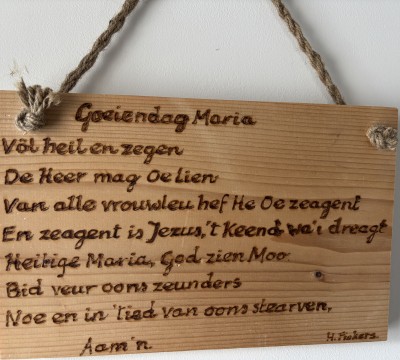 Goeiendag Maria
Völ heil en zegen
De Heer mag Oe lien
Van alle vrouwleu hef He Oe zeagent
En zeagent is Jezus, 't Keend wa'i dreagt
Heilige Maria, God zien Moo.
Bid veur oons zeunders
Noe en in 'tied van oons stearven,
Aam'n.